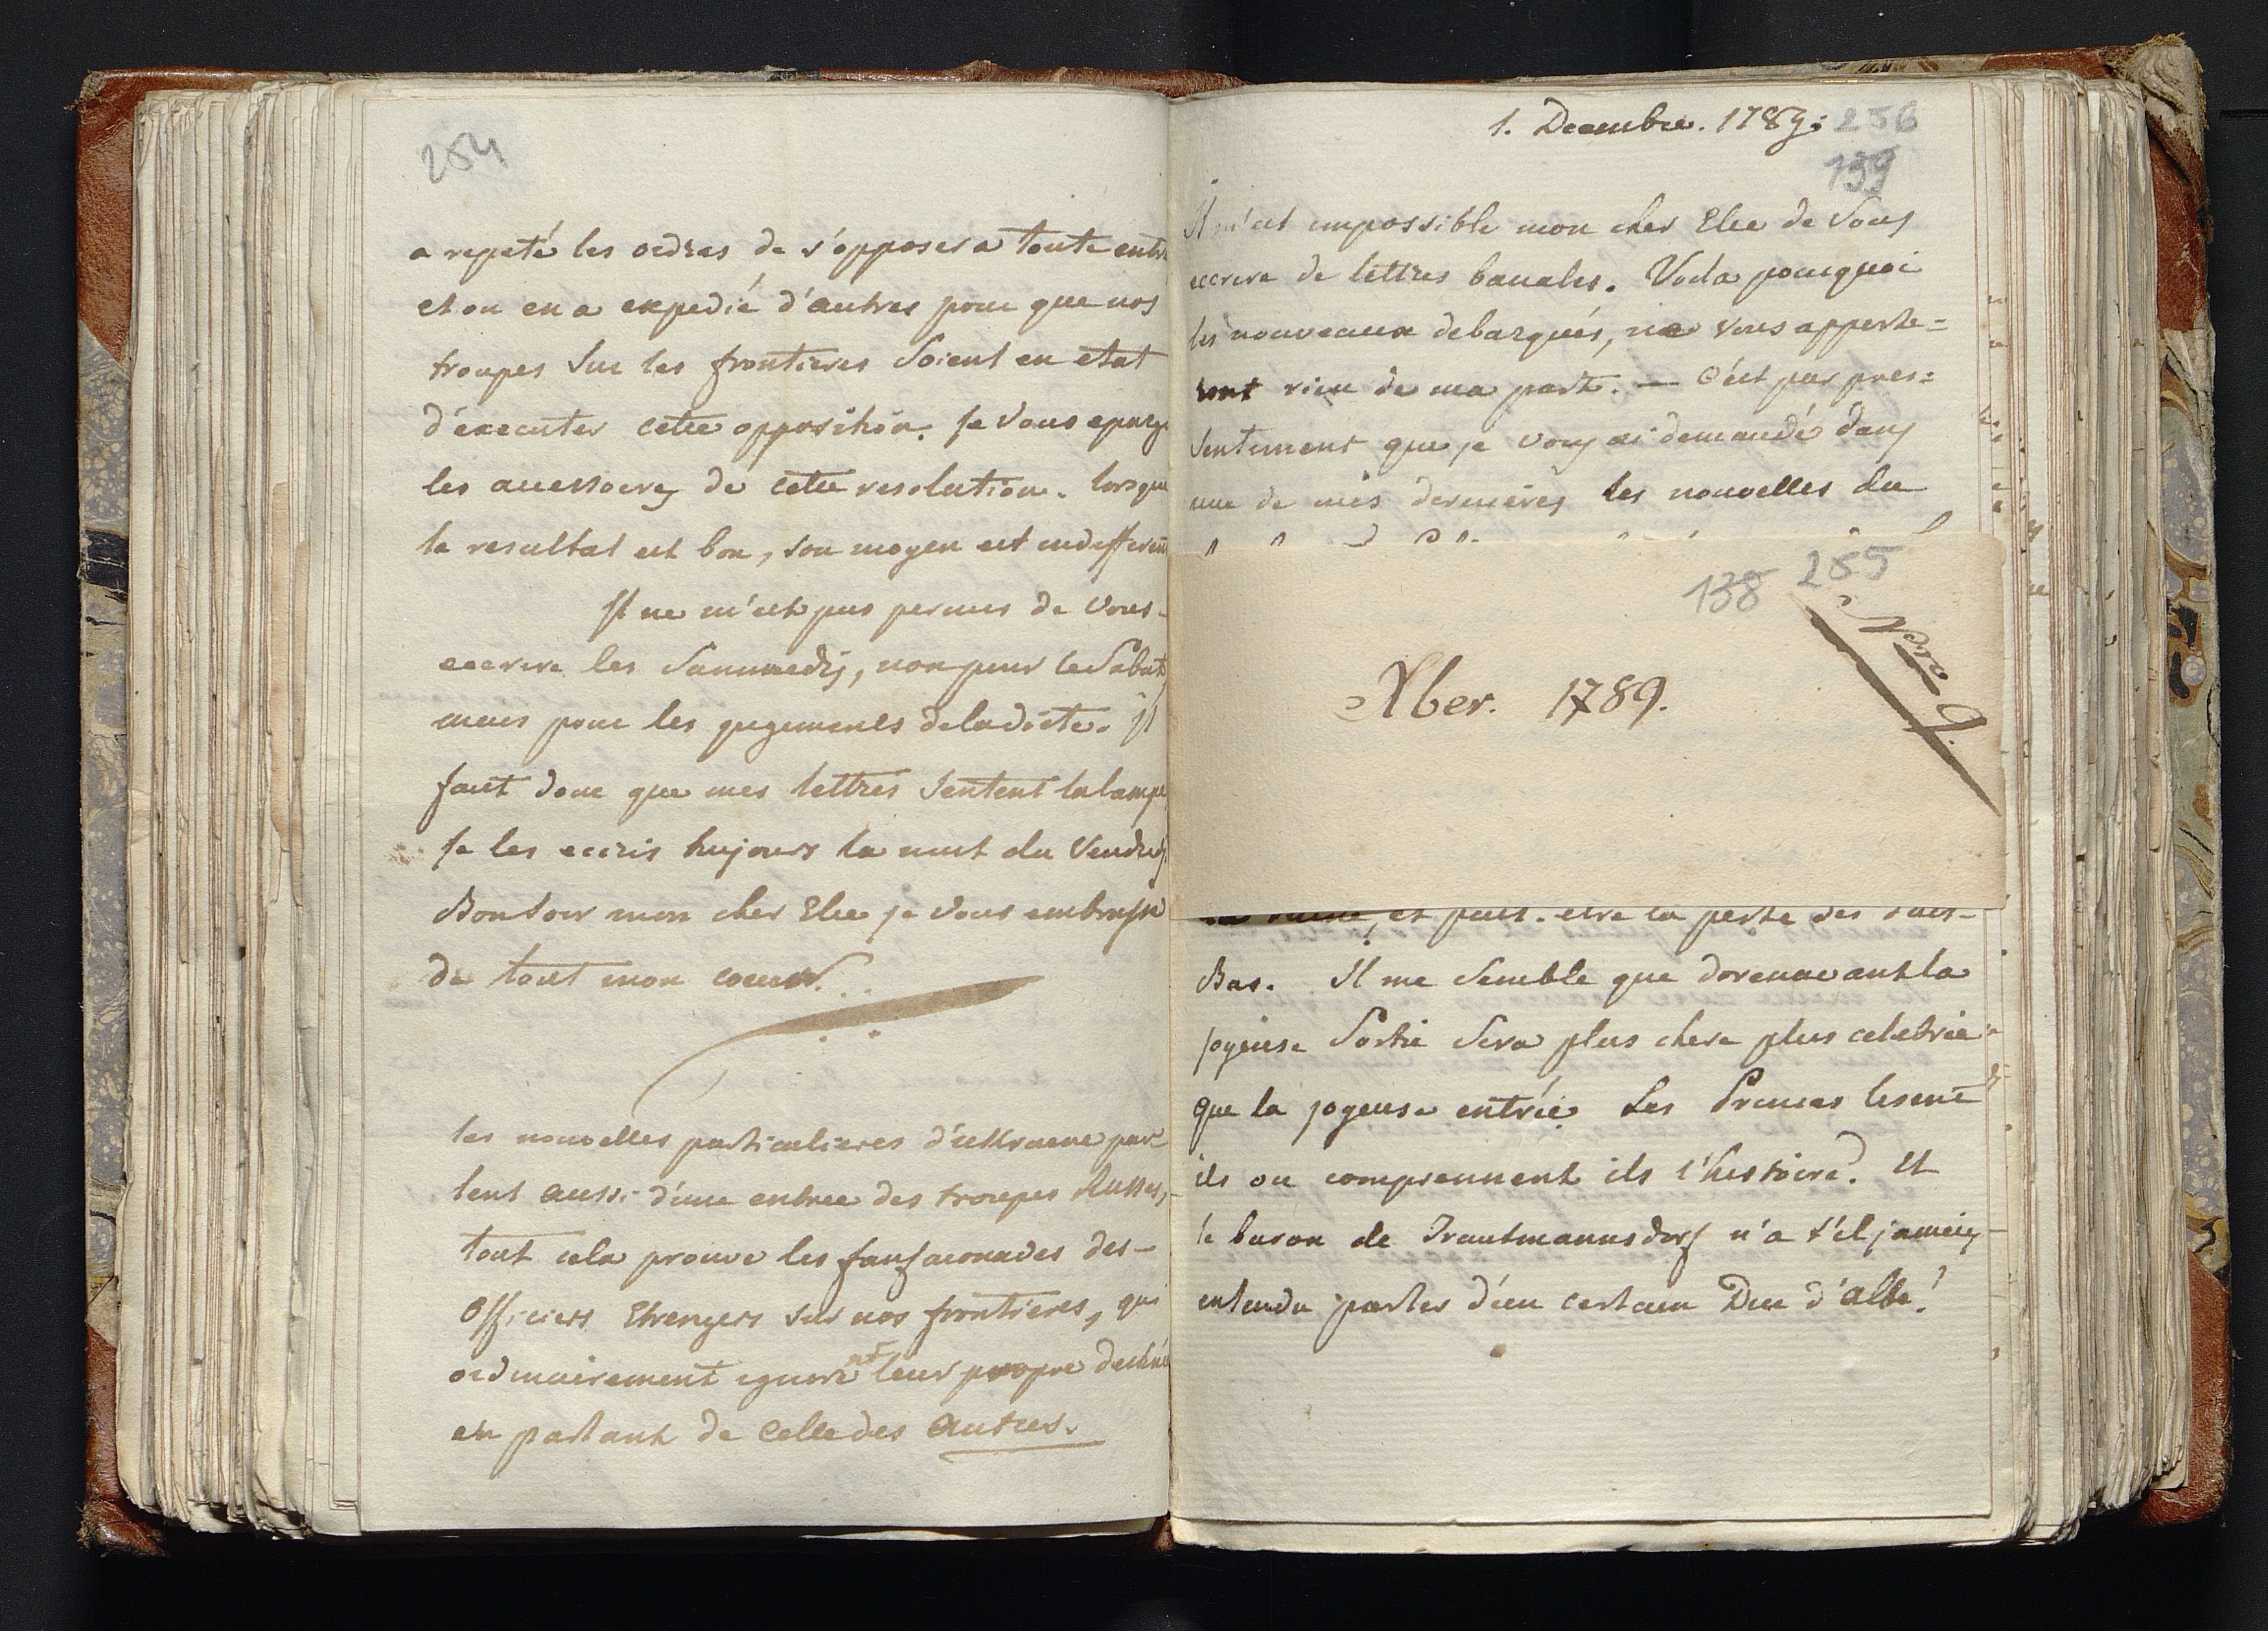 254
a repeté les ordres de s'opposer a toute entr
et on en a expedié d'autres pour que nos
troupes sur les frontieres soient en etat
d'éxecuter cette opposition. Je vous eparg
les accessoires de cette resolution. lorsque
le resultat est bon, son moyen est indifferent
Il ne m'est pas permis de vous-
eccrire les Sammedis, non pour le Sabat,
mais pour les jugements de la diete. Il
faut donc que mes lettres sentent la lampe
Je les eccris toujours la nuit du Vendredi
Bonsoir mon cher Elie je vous embrasse
de tout mon coeur.
les nouvelles particulieres d'ukraine par-
lent aussi d'une entree des troupes Russes,-
tout cela prouve les fanfaronades des-
Officiers Etrengers sur nos frontieres, qui
ordinairement ignorent leur propre destiné
en parlant de celle des autres.
1. Decembre. 1789: 256
139
Il m'est impossible mon cher Elie de Vous
eccrire de lettres banales. Voila pourquoi
les nouveaux debarqués, ne vous apporte=
ront rien de ma part. — C'est par pres=
sentiment que je vous ai demandé dans
une de mes dernieres les nouvelles du
138 255
Nro 9.
Xber. 1789.
et peut-etre la perte des Païs-
Bas. Il me semble que dorenavant la
joyeuse Sortie sera plus chere plus celebrée
que la joyeuse entrée. Les Princes lisent
ils ou comprennent ils l'histoire? Et
le baron de Trautmannsdorf n'a t'il jamais
entendu parler d'un certain Duc d'albe?